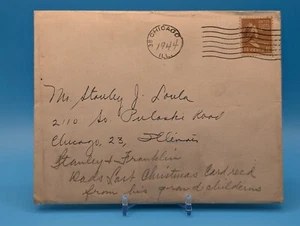 CHICAGO
38
1944
ILL.
Mr Stanley J. Loula
2110 So Pulaski Road
Chicago, 23, Illinois
Stanley & Franklin
Dads Last Christmas Card recd
from his grand childrens